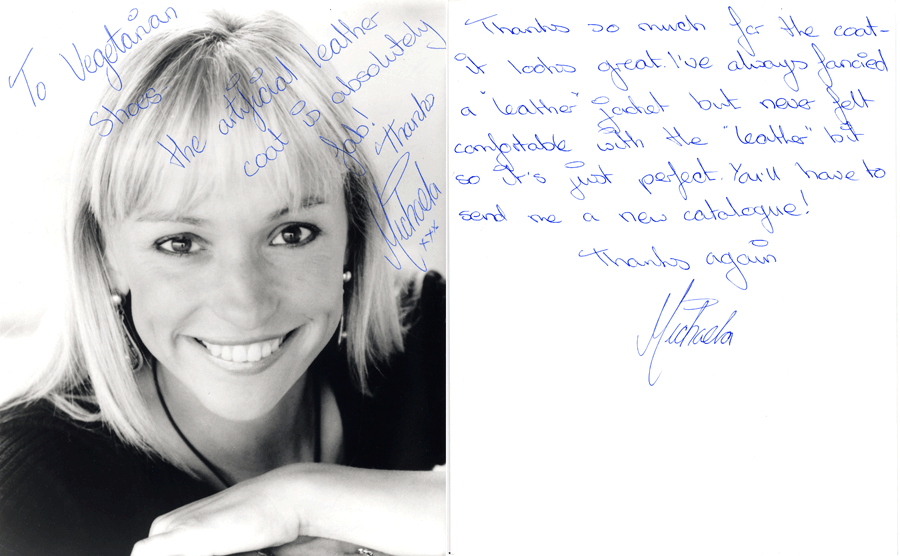 To Vegetarian
Shoes
the artificial leather
coat is absolutely
fab!
Thanks
Michaela
xxx
Thanks so much for the coat-
it looks great. I've always fancied
a "leather" jacket but never felt
comfortable with the "leather" bit
so it's just perfect. You'll have to
send me a new catalogue!
Thanks again
Michaela